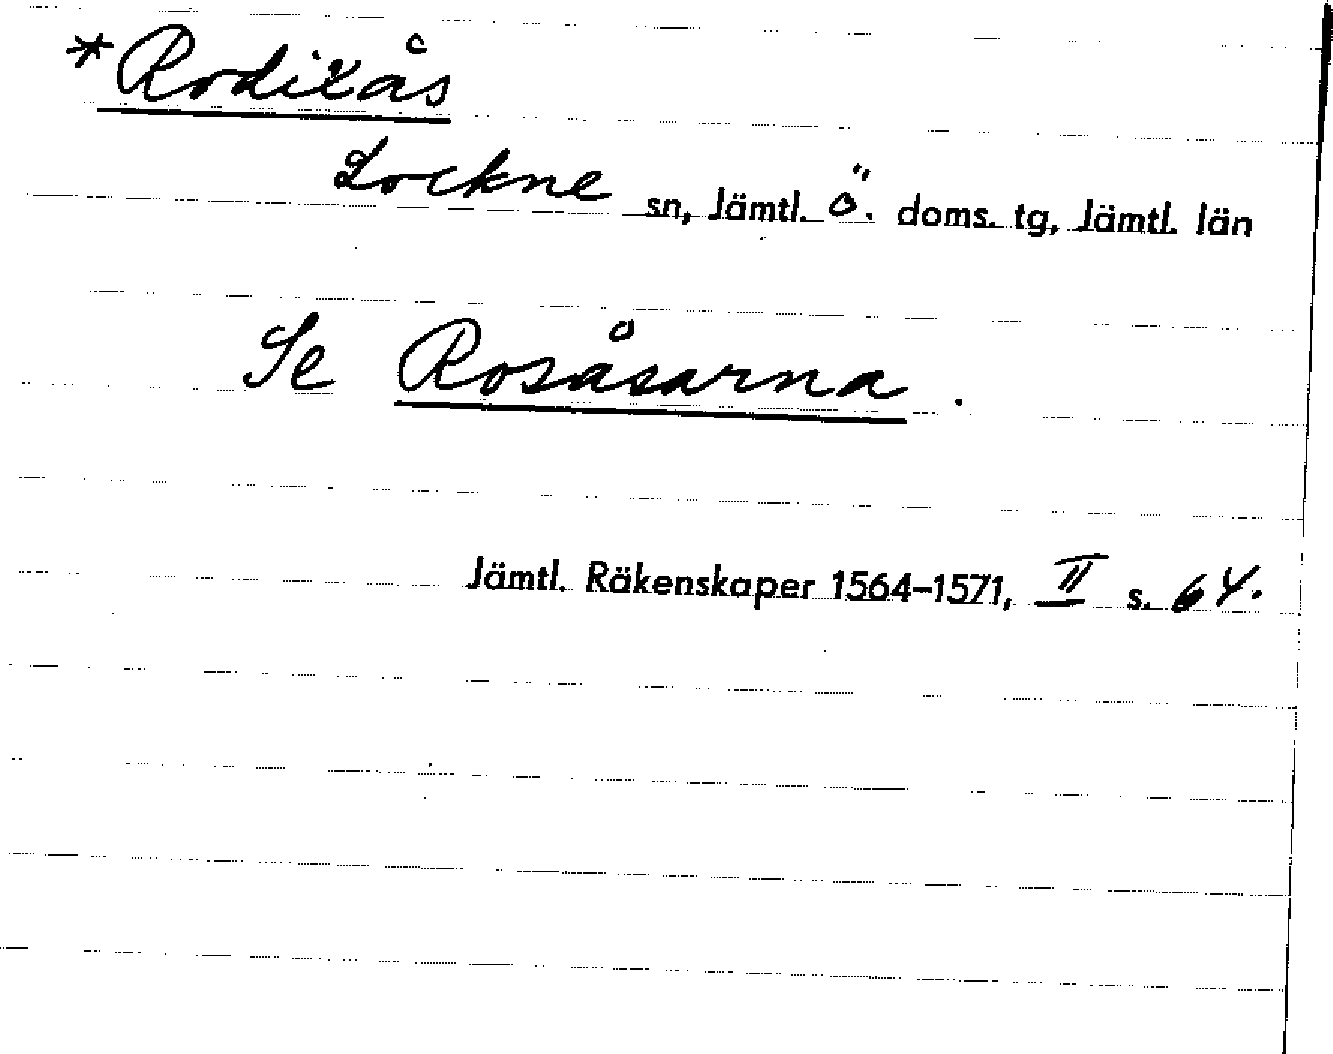 *Rodixås
Lockne sn, Jämtl. Ö. doms. tg, Jämtl. län
Se Rosåsarna.
Jämtl. Räkenskaper 1564–1571, II s. 64.